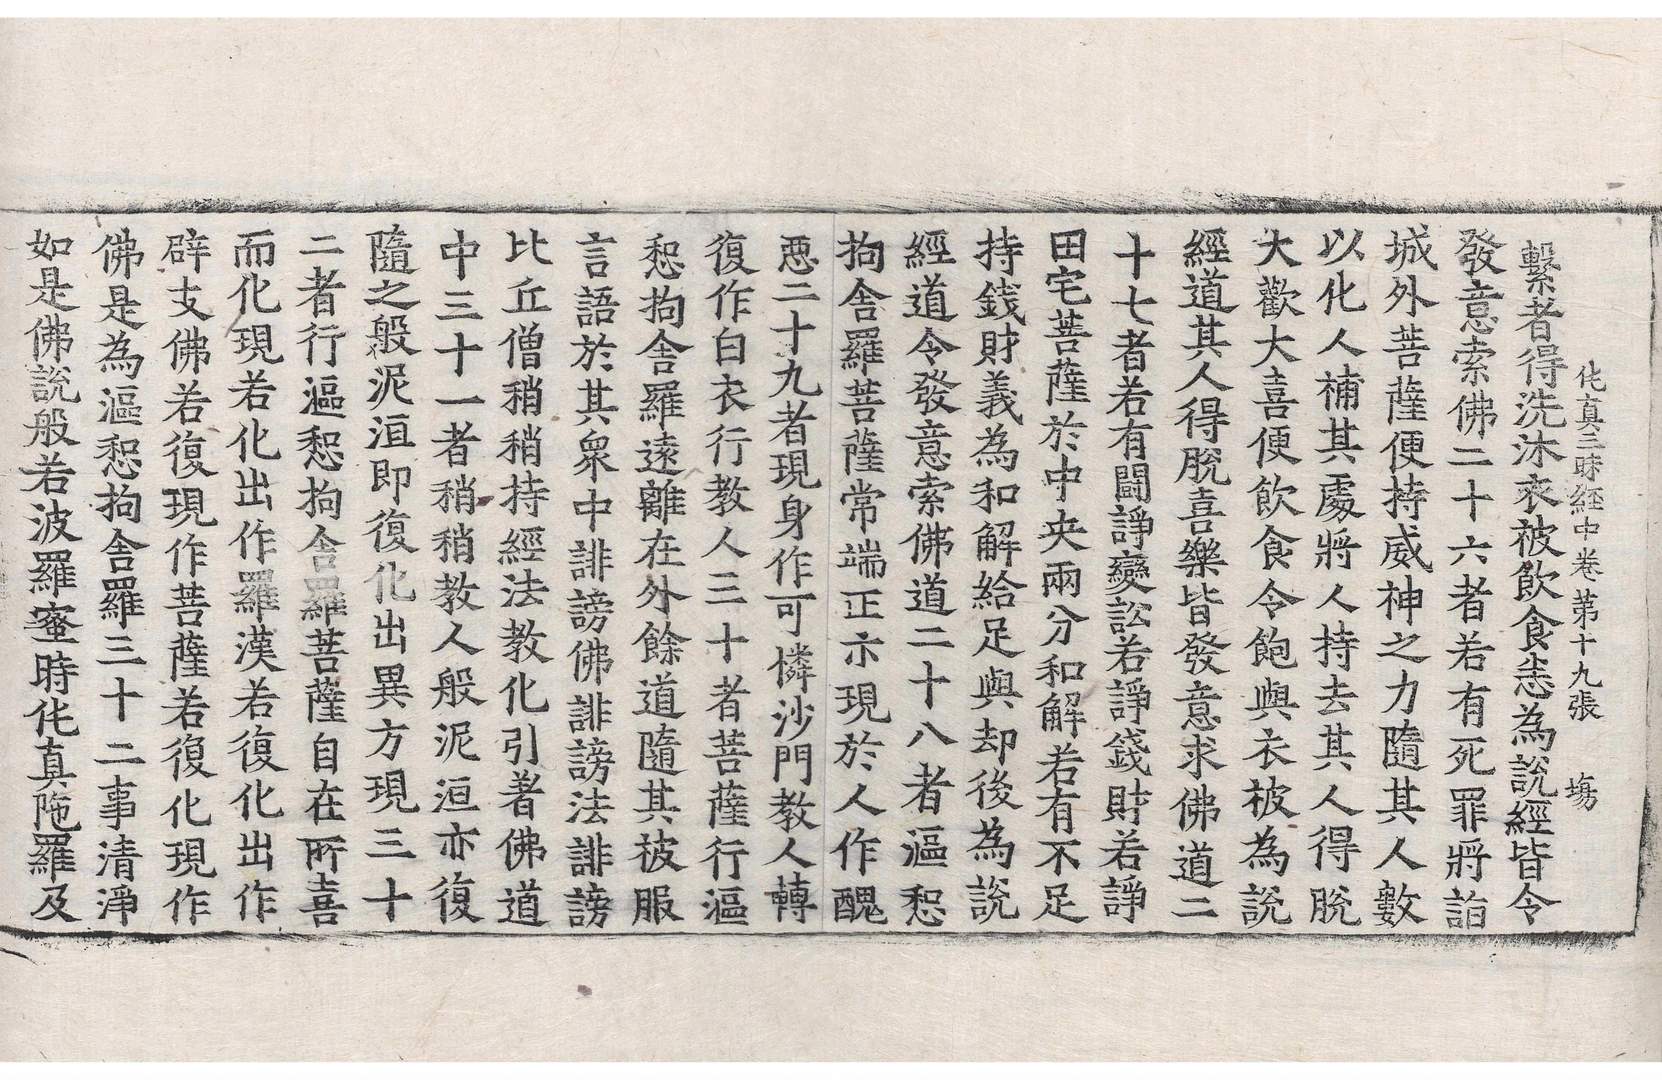 伅真三昧經中卷第十九張 塲
繫者得洗沐衣被飲食恙為說經皆令
發意索佛二十六者若有死罪將詣
城外菩薩便持威神之力隨其人數
以化人補其處將人持去其人得脫
大歡大喜便飲食令飽與衣被為說
經道其人得脫喜樂皆發意求佛道二
十七者若有鬪諍變訟若諍錢財若諍
田宅菩薩於中央兩分和解若有不足
持錢財義為和解給足與却後為說
經道令發意索佛道二十八者漚惒
拘舍羅菩薩常端正示現於人作醜
惡二十九者現身作可憐沙門教人轉
復作白衣行教人三十者菩薩行漚
惒拘舍羅遠離在外餘道隨其被服
言語於其衆中誹謗佛誹謗法誹謗
比丘僧稍稍持經法教化引著佛道
中三十一者稍稍教人般泥洹亦復
隨之般泥洹即復化出異方現三十
二者行漚惒拘舍羅菩薩自在所喜
而化現若化出作羅漢若復化出作
辟支佛若復現作菩薩若復化現作
佛是為漚惒拘舍羅三十二事清淨
如是佛說般若波羅蜜時伅真陁羅及